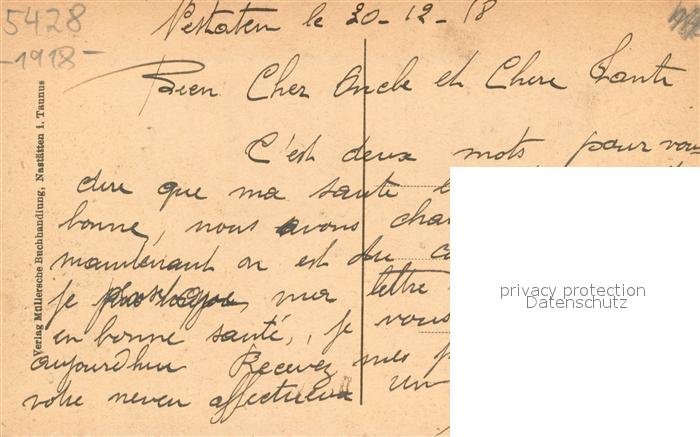 5428
-1918-
Nestaten le 20-12-18
Bien Cher Oncle et Chere Tante
C'est deux mots, pour vou
dire que ma santé
bonne, nous avons chan
maintenant on est du
je ma lettre
en bonne santé, je vous
aujourdhui Recevez mes
votre neveu affectueux un
Verlag Müllersche Buchhandlung, Nastätten i. Taunus
privacy protection
Datenschutz